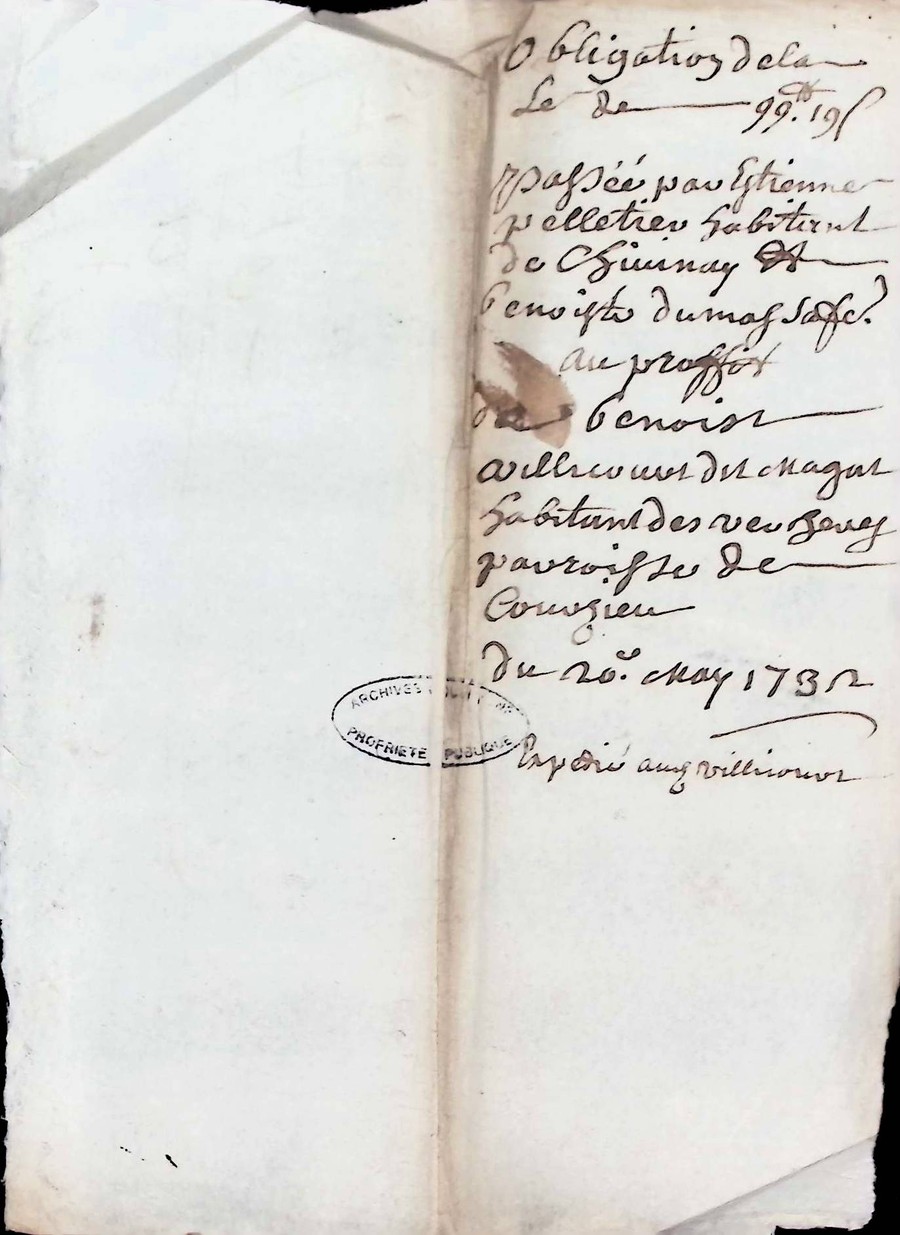 Obligation de la
Se de 99.tt 19 s
passée par Estienne
pelletier habitant
de Chivinay Et
benoiste dumas sa fe.
au proffit
de benoist
villecourt dit Magat
habitant des verchery
parroisse de
Courzieu
du 20.e May 1732
Expedié aud villicourt
ARCHIVES
PROPRIETE PUBLIQUE